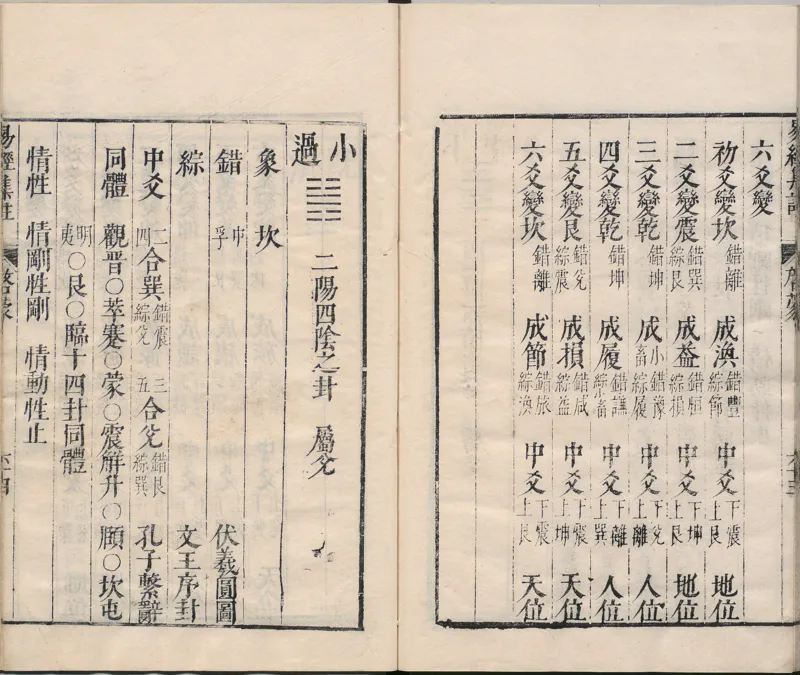 六爻變
初爻變坎 錯離 成渙 錯豐 綜節 中爻 下震 上艮 地位
二爻變震 錯巽 綜艮 成益 錯恒 綜損 中爻 下坤 上艮 地位
三爻變乾 錯坤 成小畜 錯豫 綜履 中爻 下兌 上離 人位
四爻變乾 錯坤 成履 錯謙 綜小畜 中爻 下離 上巽 人位
五爻變艮 錯兌 綜震 成損 錯咸 綜益 中爻 下震 上坤 天位
六爻變坎 錯離 成節 錯旅 綜渙 中爻 下震 上艮 天位
小過 二陽四陰之卦 屬兌
象坎
錯 中孚 伏羲圓圖
綜 文王序卦
中爻 二四合巽 錯震 綜兌 三五合兌 錯艮 綜巽 孔子繫辭
同體 觀晋○萃蹇○蒙○震解升○頤○坎屯
明夷○艮○臨十四卦同體
情性 情剛性剛 情動性止
易經集註 啓蒙 六十四